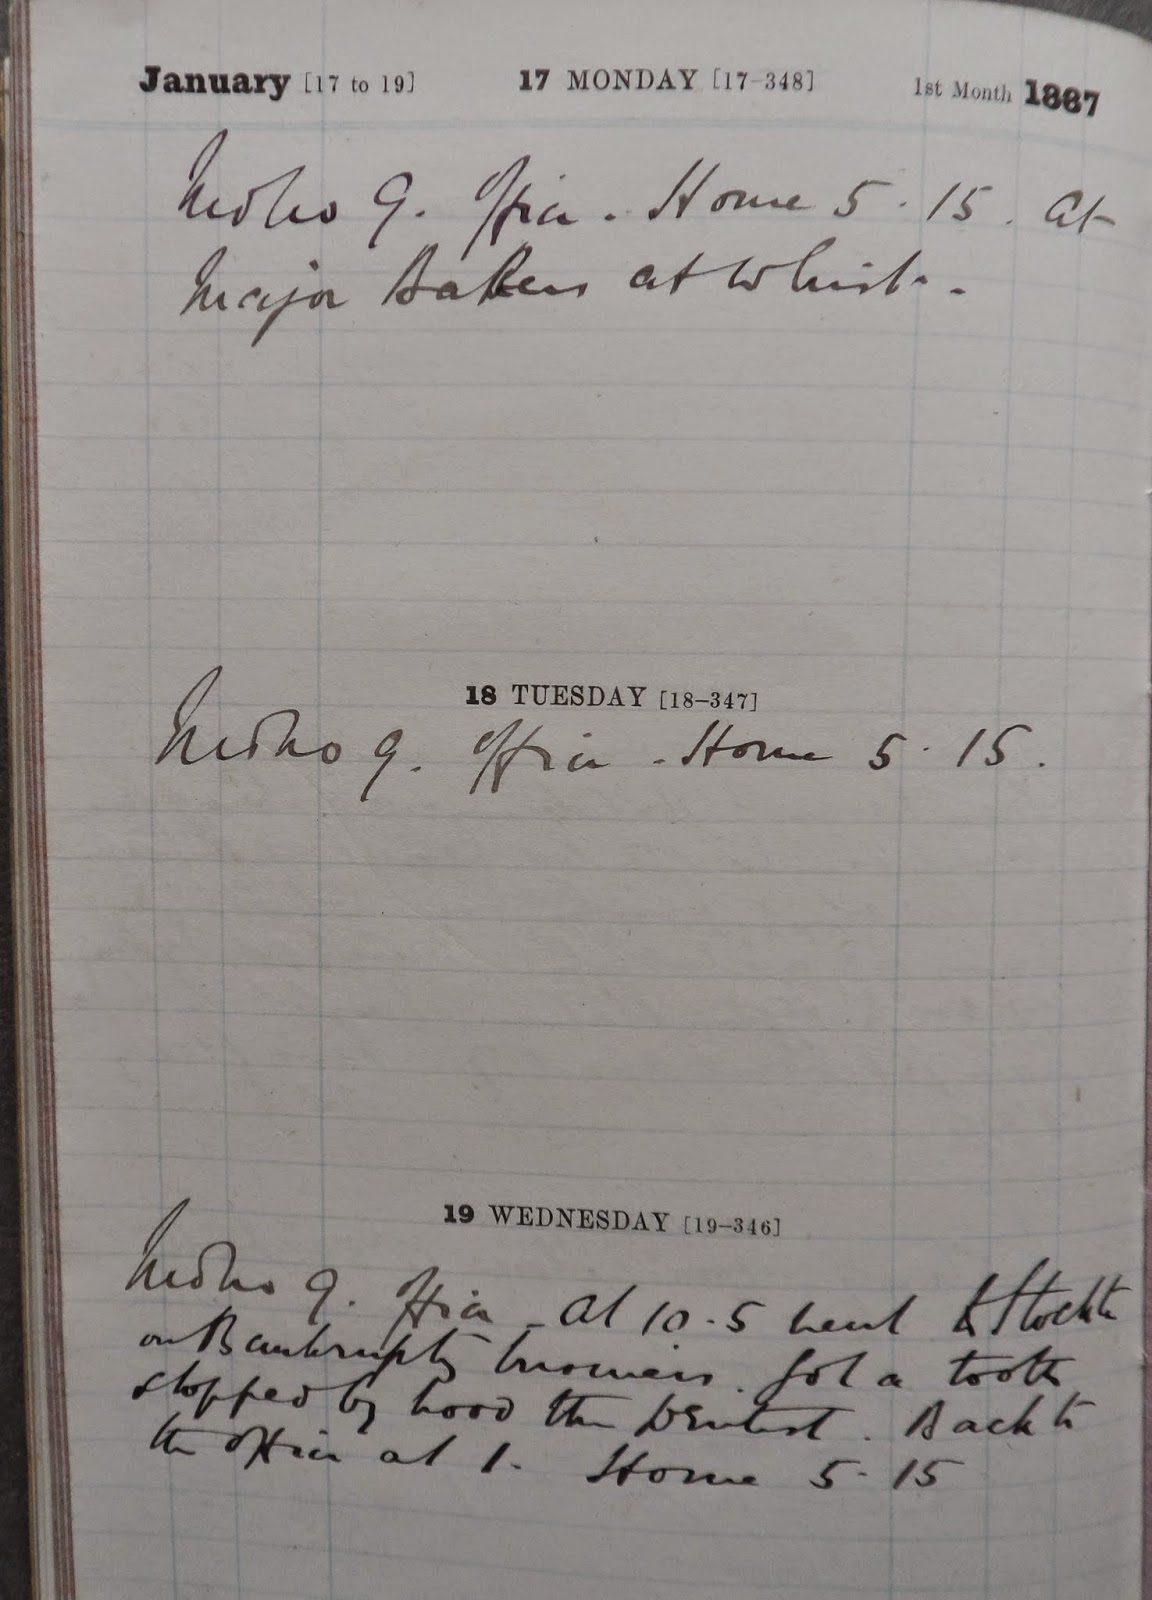 January [17 to 19] 17 MONDAY [17-348] 1st Month 1887
9. Office. Home 5.15. At
Major Bakers at Whist.
18 TUESDAY [18-347]
9. Office. Home 5.15.
19 WEDNESDAY [19-346]
9. Office. At 10.5 went to Stockton
on Bankruptcy business. Got a tooth
stopped by Wood the Dentist. Back to
the office at 1. Home 5.15